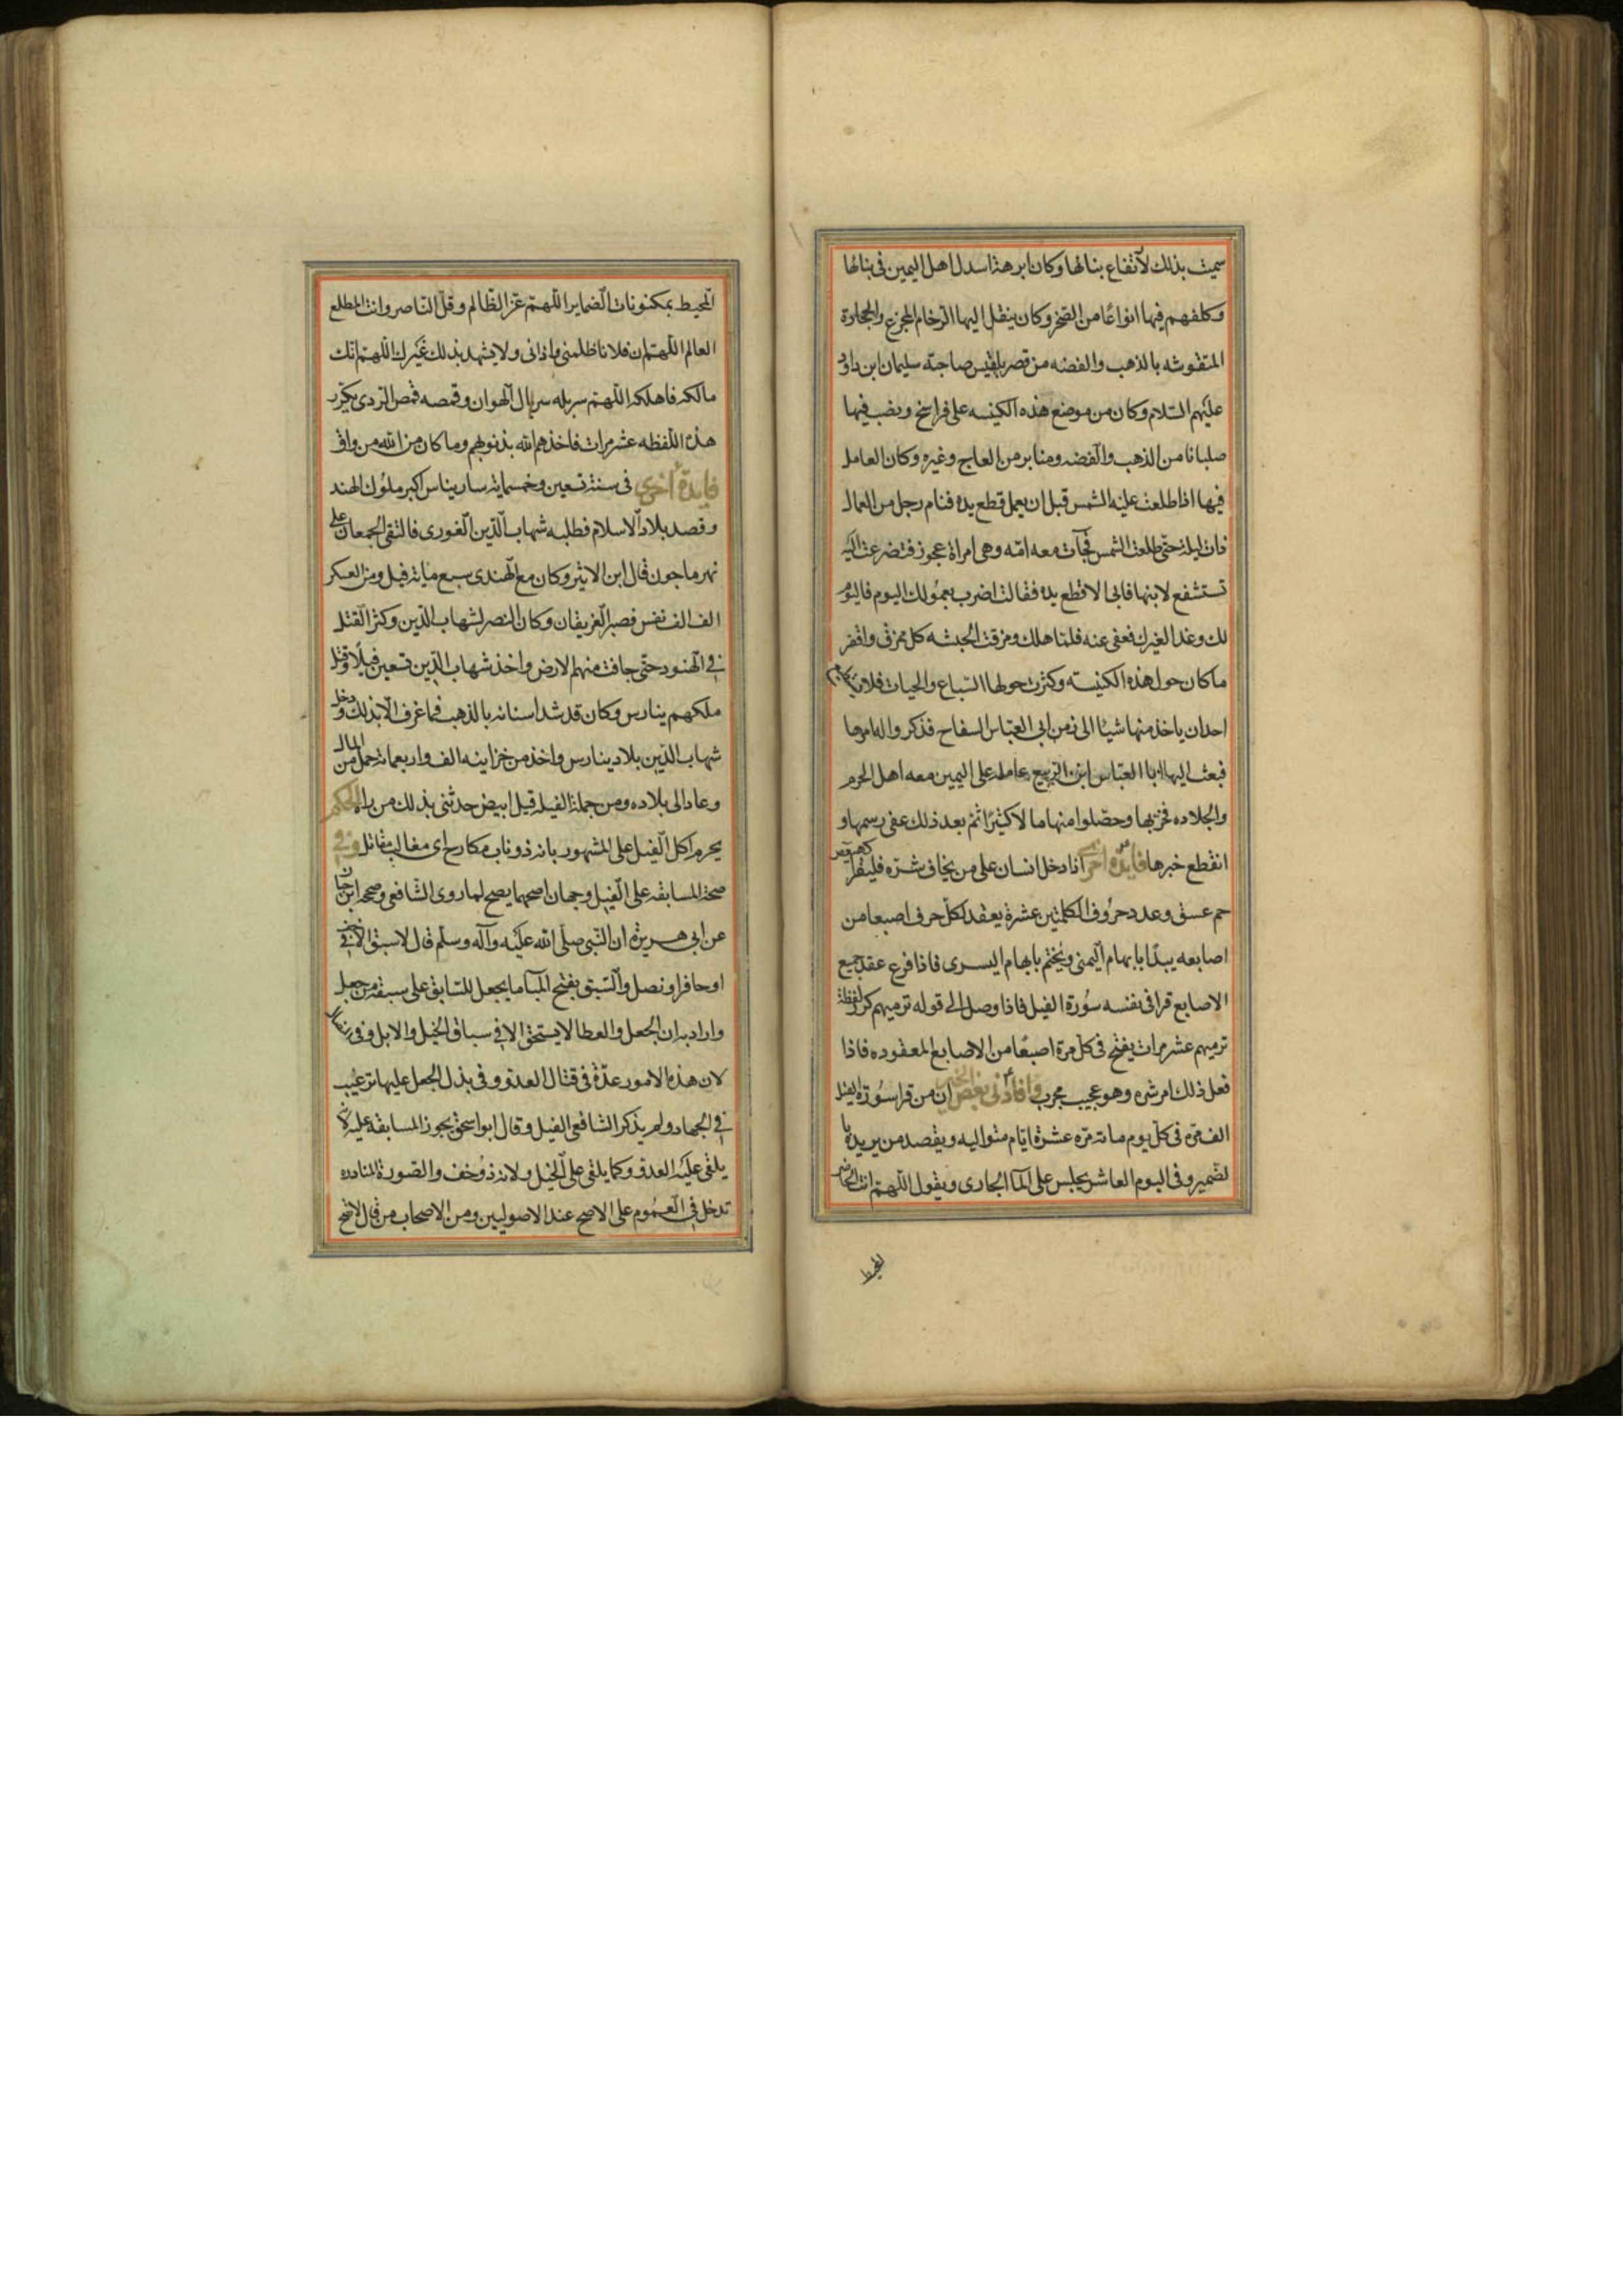 سميت بذلك لارتفاع بنائها وكان ابرهة استدل اهل اليمين فى بنائها
وكلفهم فيها انواعا من السخر وكان ينقل اليها الرخام المجزع والحجارة
المنقوشه بالذهب والفضه من قصر بلقيس صاحبة سليمان ابن داود
عليهم السلام وكان من موضع هذه الكنيسه على فراسخ ونصب فيها
صلبانا من الذهب والفضه ومنابر من العاج وغيره وكان العامل
فيها اذا طلعت عليه الشمس قبل ان يعمل قطع يده فنام رجل من العمال
ذات ليلة حتى طلعت الشمس فجآت معه امه وهى امراة عجوز فتضرعت اليه
تستشفع لابنها فابى الا قطع يده فقالت اضرب بمعولك اليوم فاليوم
لك وغدا لغيرك فعفى عنه فلما هلك ومزقت الحبشه كل ممزق واقفر
ما كان حول هذه الكنيسه وكثرت حولها السباع والحيات فلا
احد ان ياخذ منها شيئا الى زمن ابى العباس السفاح فذكر واله امرها
فبعث اليها ابا العباس ابن الربيع عامله على اليمين معه اهل الحزم
والجلاده فخربها وحصلوا منها مالا كثيرا ثم بعد ذلك عفى رسمها و
انقطع خبرها فايدة اخرى اذا دخل انسان على من يخاف شره فليقرا كهيعص
حم عسق وعدد حروف الكلمتين عشرة يعقد لكل حرف اصبعا من
اصابعه يبدا بابهام اليمنى ويختم بابهام اليسرى فاذا فرغ عقد جميع
الاصابع قرا فى نفسه سورة الفيل فاذا وصل الى قوله ترميهم كرر لفظة
ترميهم عشر مرات يفتح فى كل مرة اصبعا من الاصابع المعقوده فاذا
فعل ذلك امن شره وهو عجيب مجرب وافادنى بعض ان من قرا سورة الفيل
الف مرة فى كل يوم مائة مرة عشرة ايام متواليه ويقصد من يريده با
لضمير وفى اليوم العاشر يجلس على المآ الجارى ويقول اللهم انت الحاضر
المحيط
المحيط بمكنونات الضماير اللهم عز الظالم وقل الناصر وانت المطلع
العالم اللهم ان فلانا ظلمنى واذانى ولا يشهد بذلك غيرك اللهم انك
مالكه فاهلكه اللهم سربله سربال الهوان وقمصه قمص الردى يكرر
هذه اللفظه عشر مرات فاخذهم الله بذنوبهم وما كان من الله من واق
فايدة اخرى فى سنة تسعين وخمسماية سار بناس اكبر ملوك الهند
وقصد بلاد الاسلام فطلبه شهاب الدين الغورى فالتقى الجمعان على
نهر ماجون قال ابن الاثير وكان مع الهندى سبع ماية فيل ومن العسكر
الف الف نفس فصبر الفريقان وكان النصر لشهاب الدين وكثر القتل
فى الهنود حتى جافت منهم الارض واخذ شهاب الدين تسعين فيلا وقتل
ملكهم بنارس وكان قد شد اسنانه بالذهب فما عرف الا بذلك ودخل
شهاب الدين بلاد بنارس واخذ من خزاينه الف واربعمائة حمل من المال
وعاد الى بلاده ومن جملة الفيله فيل ابيض حدثنى بذلك من راه الحكم
يحرم اكل الفيل على المشهور بانه ذوناب مكارح اى مغالب مقاتل وفى
صحة المسابقه على الفيل وجهان اصحهما يصح لما روى الشافعى وصححه ابن حبان
عن ابى هريرة ان النبى صلى الله عليه وآله وسلم قال لا سبق الا فى خف
او حافر او نصل والسبق بفتح البآ ما يجعل للسابق على سبقه من جعل
واراد به ان الجعل والعطا لا يستحق الا فى سباق الخيل والابل وفى
لان هذه الامور عدة فى قتال العدو وفى بذل الجعل عليها ترغيب
فى الجهاد ولم يذكر الشافعى الفيل وقال ابو اسحق يجوز المسابقه عليه لانه
يلقى عليه العدو وكما يلقى على الخيل ولانه ذوخف والصورة النادره
تدخل فى العموم على الاصح عند الاصوليين ومن الاصحاب من قال لا تصح